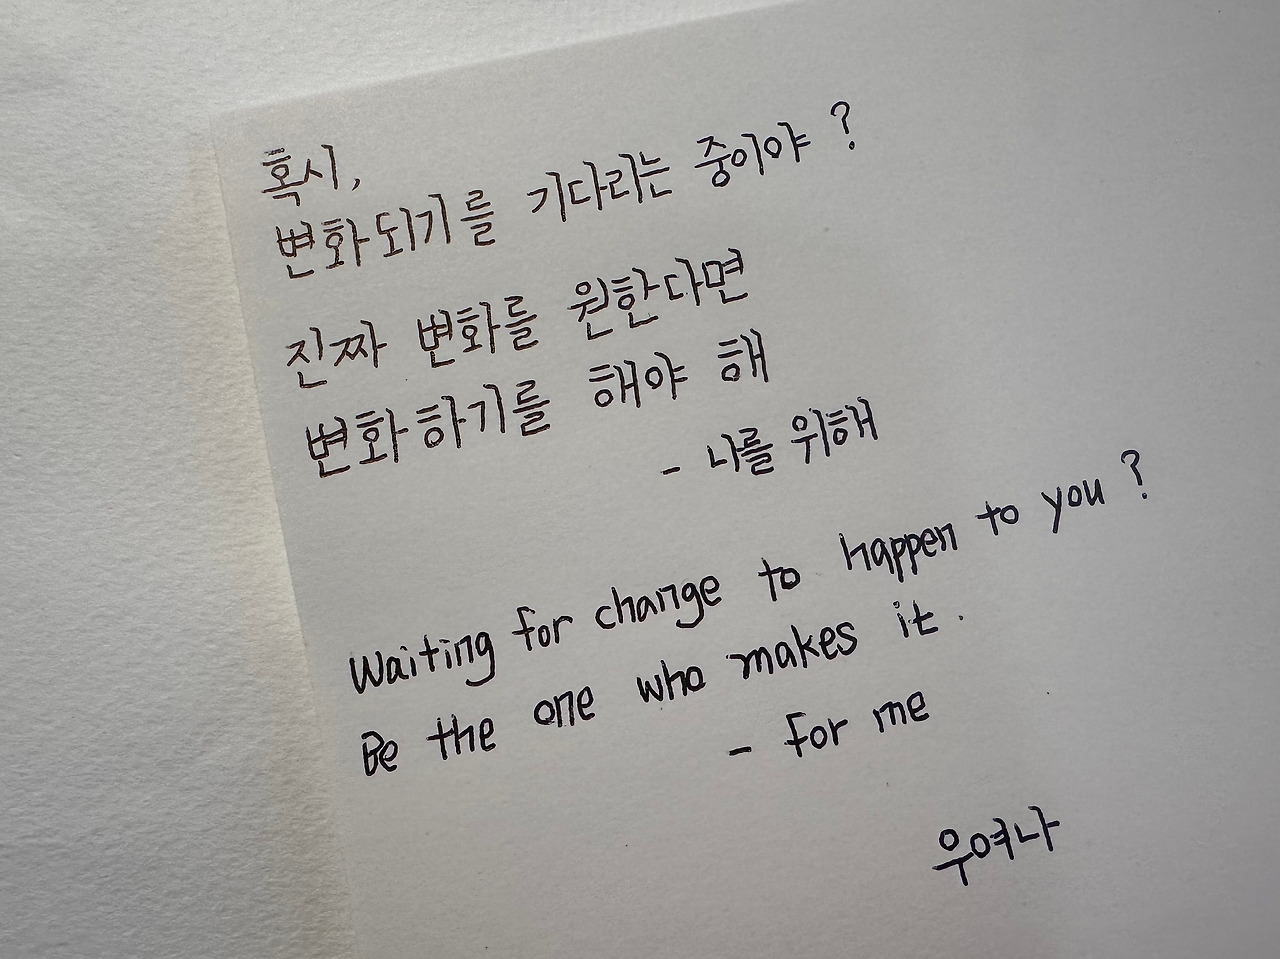 혹시,
변화되기를 기다리는 중이야?
진짜 변화를 원한다면
변화하기를 해야 해
- 나를 위해
Waiting for change to happen to you?
Be the one who makes it.
- for me
우여나